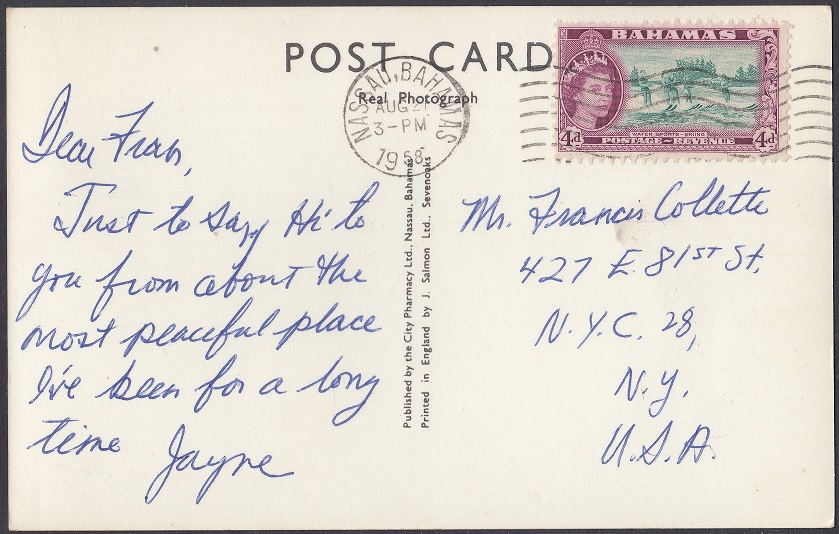 POST CARD
Real Photograph
NASSAU, BAHAMAS
AUG 2
3-PM
1958
BAHAMAS
4d 4d
WATER SPORTS - SKIING
POSTAGE~REVENUE
Dear Fran,
Just to say Hi to
you from about the
most peaceful place
I've been for a long
time Jayne
Published by the City Pharmacy Ltd., Nassau, Bahamas
Printed in England by J. Salmon Ltd., Sevenoaks
Mr. Francis Collette
427 E. 81ST St,
N.Y.C. 28,
N.Y.
U.S.A.